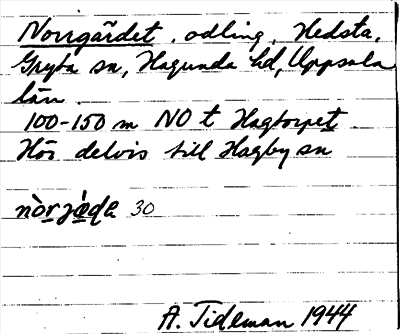 Norrgärdet, odling, Hedsta,
Gryta sn, Hagunda hd, Uppsala
län.
100-150 m NO t Hagtorpet
Hör delvis till Hagby sn
30
A. Tideman 1944